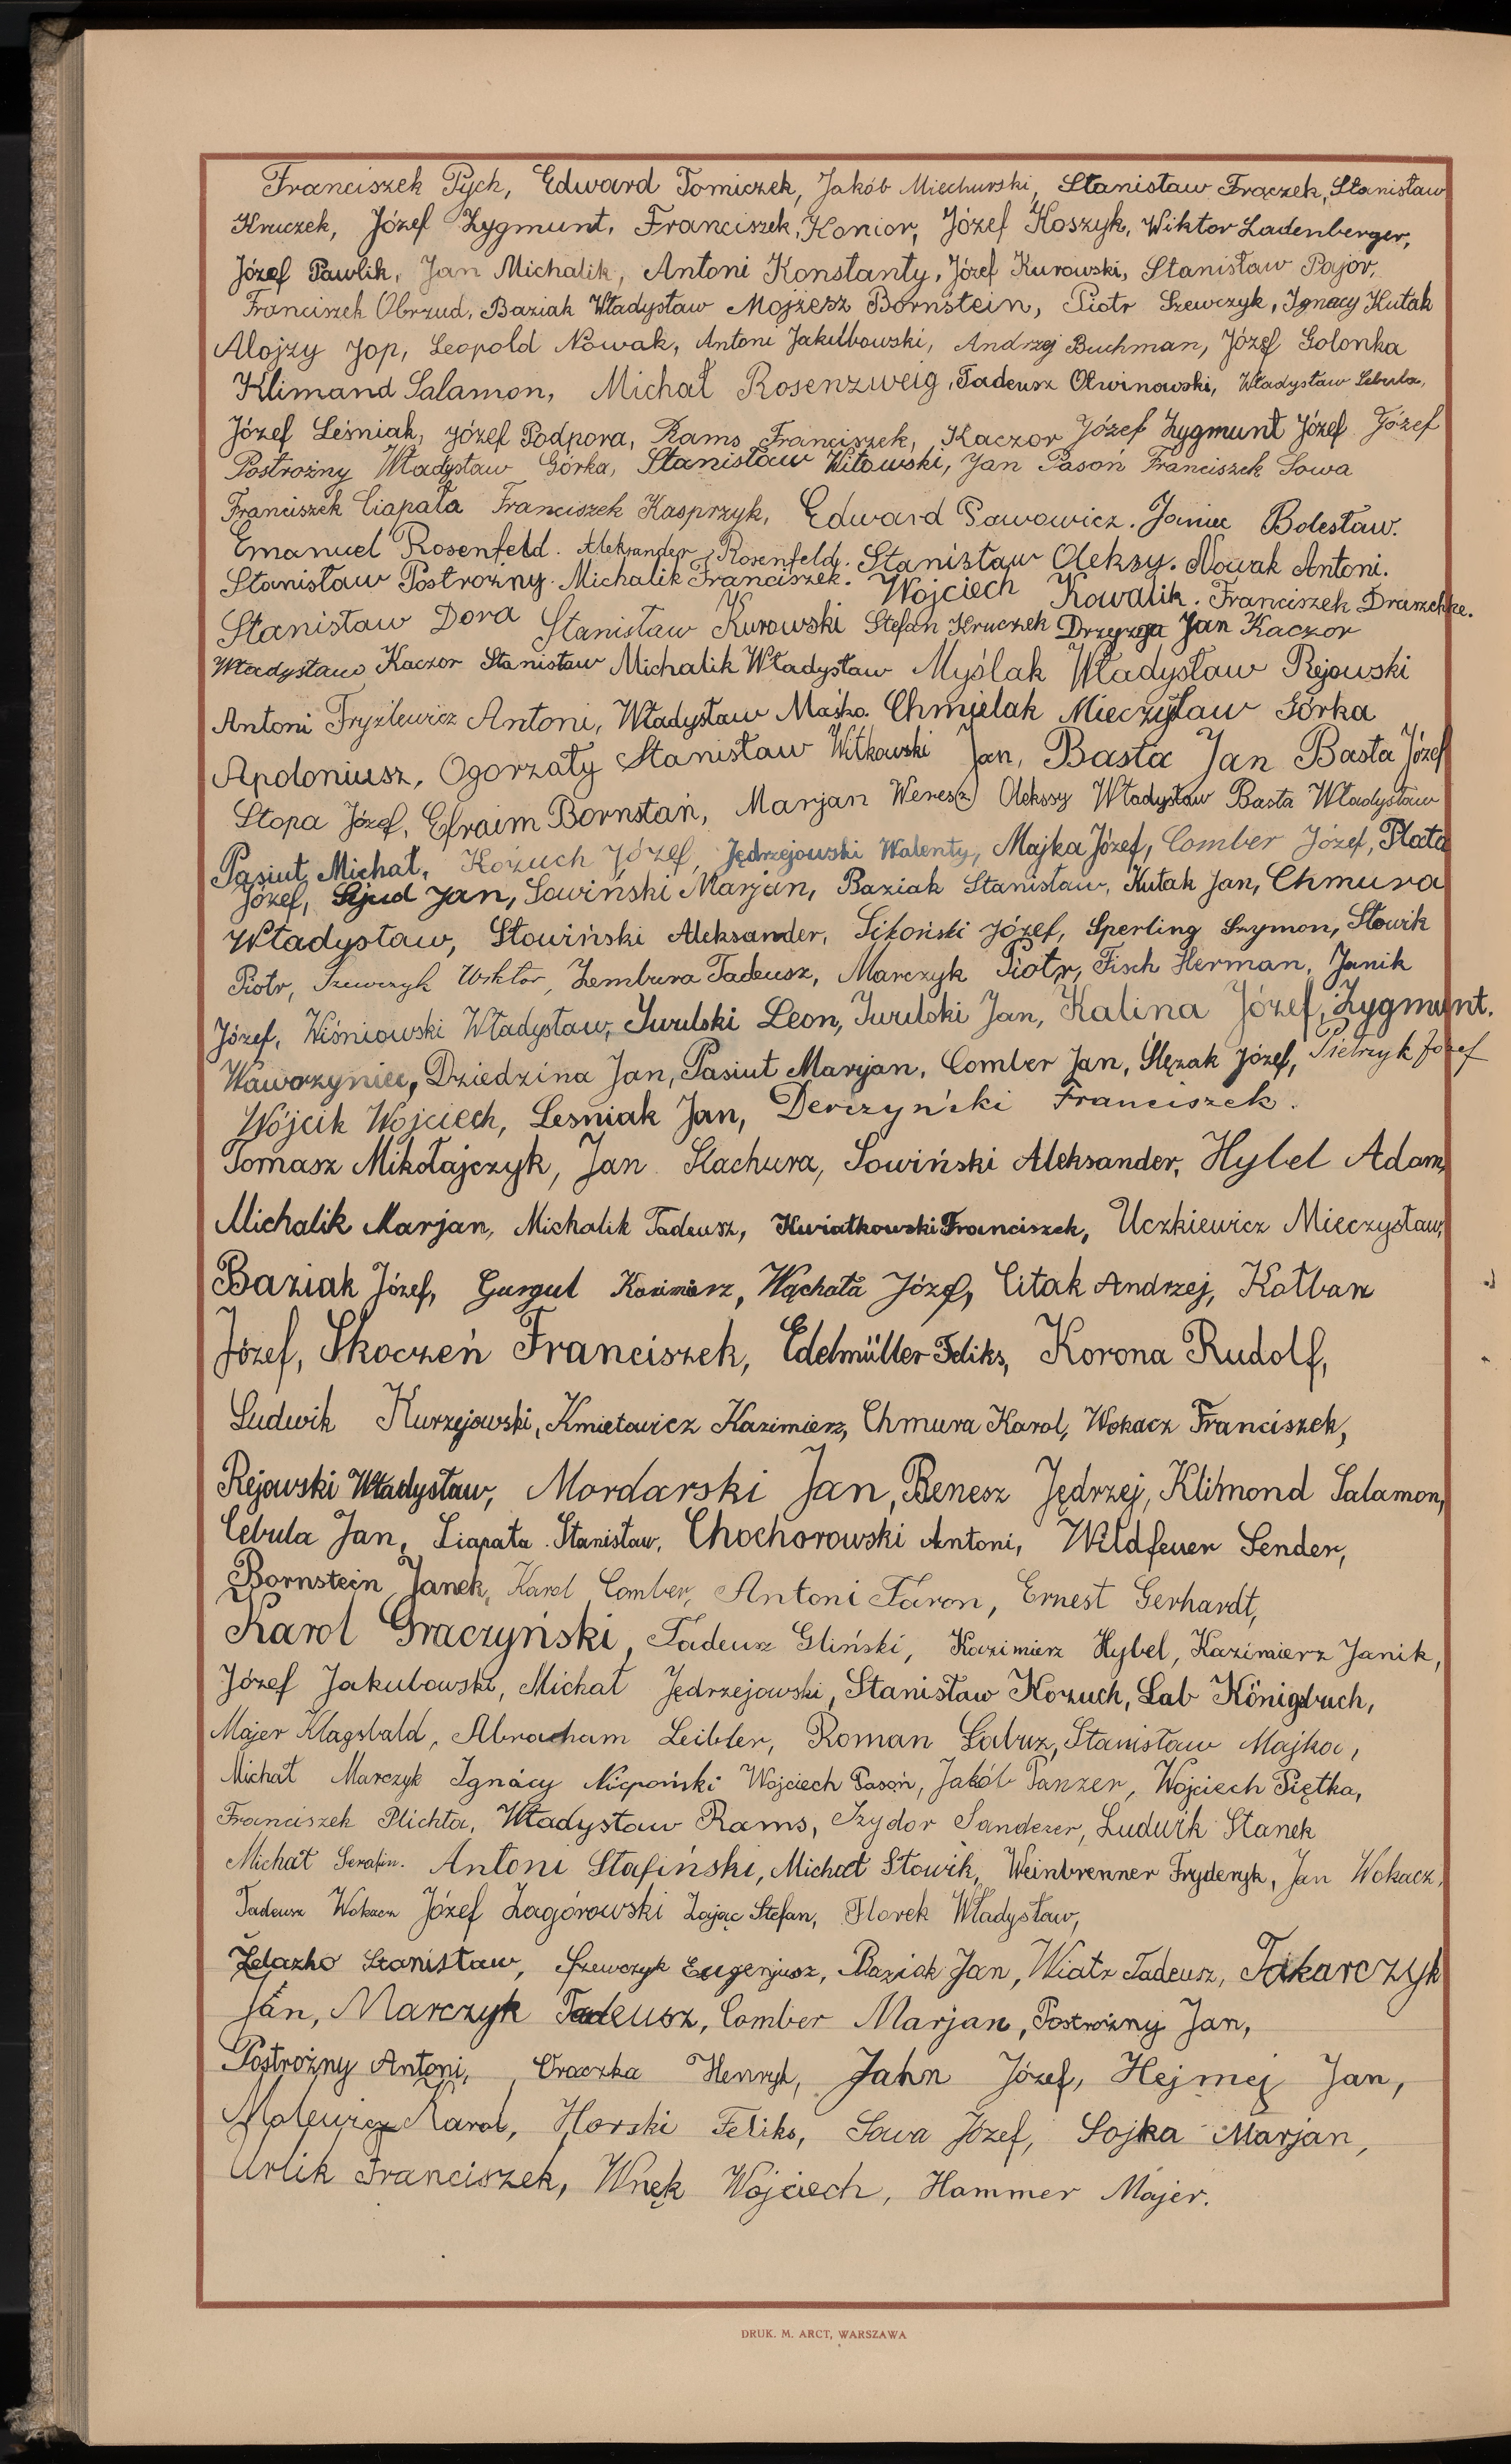 Franciszek Pych, Edward Tomiczek, Jakób Miechurski, Stanisław Frączek, Stanisław
Kruczek, Józef Zygmunt, Franciszek, Konior, Józef Koszyk, Wiktor Ladenberger,
Józef Pawlik, Jan Michalik, Antoni Konstanty, Józef Kurowski, Stanisław Pajor,
Franciszek Obrzud, Baziak Władysław Mojżesz Bornstein, Piotr Szewczyk, Ignacy Kutak
Alojzy Jop, Leopold Nowak, Antoni Jakubowski, Andrzej Buchman, Józef Golonka
Klimand Salamon, Michał Rosenzweig, Tadeusz Olwinowski, Władysław Cebula,
Józef Leśniak, Józef Podpora, Rams Franciszek, Kaczor Józef Zygmunt Józef Józef
Postrożny Władysław Górka, Stanisław Witowski, Jan Pasoń Franciszek Sowa
Franciszek Ciapała Franciszek Kasprzyk, Edward Pawowicz. Janiec Bolesław.
Emanuel Rosenfeld. Aleksander Rosenfeld. Stanisław Oleksy. Nowak Antoni.
Stanisław Postrożny. Michalik Franciszek. Wojciech Kowalik. Franciszek Draszchke.
Stanisław Dora Stanisław Kurowski Stefan Kruczek Drzyzga Jan Kaczor
Władysław Kaczor Stanisław Michalik Władysław Myślak Władysław Rejowski
Antoni Fryzlewicz Antoni, Władysław Maśko. Chmielak Mieczysław Górka
Apoloniusz, Ogorzały Stanisław Witkowski Jan, Basta Jan Basta Józef
Stopa Józef, Efraim Bornstań, Marjan Weresz Oleksy Władysław Basta Władysław
Pasiut Michał, Kożuch Józef, Jędrzejowski Walenty, Majka Józef, Comber Józef, Plata
Józef, Sjud Jan, Sowiński Marjan, Baziak Stanisław, Kutak Jan, Chmura
Władysław, Słowiński Aleksander, Sikoński Józef, Sperling Szymon, Słowik
Piotr, Szewczyk Wiktor, Zembura Tadeusz, Marczyk Piotr, Fisch Herman, Janik
Józef, Wiśniowski Władysław, Jurulski Leon, Jurulski Jan, Kalina Józef, Zygmunt.
Wawrzyniec, Dziedzina Jan, Pasiut Marjan, Comber Jan, Ślęzak Józef, Pietrzyk Józef
Wójcik Wojciech, Lesniak Jan, Derczyński Franciszek.
Tomasz Mikołajczyk, Jan Stachura, Sowiński Aleksander, Hybel Adam,
Michalik Marjan, Michalik Tadeusz, Kwiatkowski Franciszek, Uczkiewicz Mieczysław,
Baziak Józef, Gurgul Kazimierz, Wąchała Józef, Citak Andrzej, Kołbaz
Józef, Skoczeń Franciszek, Edelmüller Feliks, Korona Rudolf,
Ludwik Kurzejowski, Kmietowicz Kazimierz, Chmura Karol, Wokacz Franciszek,
Rejowski Władysław, Mordarski Jan, Benesz Jędrzej, Klimond Salamon,
Cebula Jan, Ciapała Stanisław, Chochorowski Antoni, Wildfeuer Sender,
Bornstein Janek, Karol Comber, Antoni Faron, Ernest Gerhardt,
Karol Graczyński, Tadeusz Gliński, Kazimierz Hybel, Kazimierz Janik,
Józef Jakubowski, Michał Jędrzejowski, Stanisław Kożuch, Lab Königsbuch,
Majer Klagsbald, Abracham Leibler, Roman Łabuz, Stanisław Majka,
Michał Marczyk Ignacy Niepoński Wojciech Pasoń, Jakób Panzer, Wojciech Piętka,
Franciszek Plichta, Władysław Rams, Izydor Sanderer, Ludwik Stanek
Michał Serafin. Antoni Stafiński, Michał Słowik, Weinbrenner Fryderyk, Jan Wokacz,
Tadeusz Wokacz Józef Zagórowski Zając Stefan, Florek Władysław,
Żelazko Stanisław, Szewczyk Eugenjusz, Baziak Jan, Wiatr Tadeusz, Tokarczyk
Jan, Marczyk Tadeusz, Comber Marjan, Postrożny Jan,
Postrożny Antoni, Craczka Henryk, Jahn Józef, Hejmej Jan,
Molewicz Karol, Horski Feliks, Sowa Józef, Sojka Marjan,
Urlik Franciszek, Wnęk Wojciech, Hammer Majer.
DRUK. M. ARCT, WARSZAWA